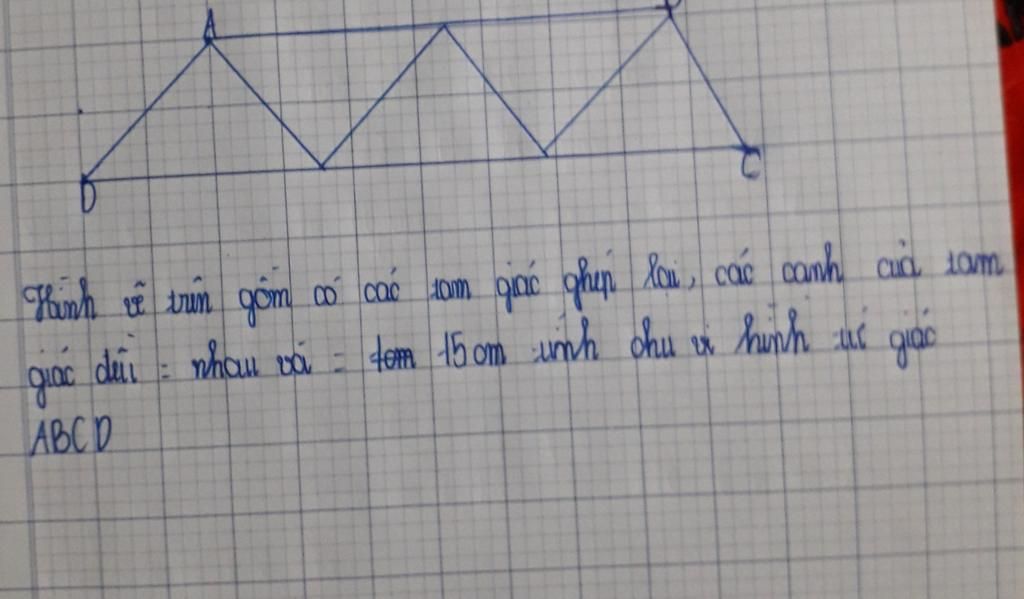 A
D
C
Hình vẽ trên gồm có các tam giác ghép lại, các cạnh của tam
giác đều = nhau và = 15cm tính chu vi hình tứ giác
ABCD